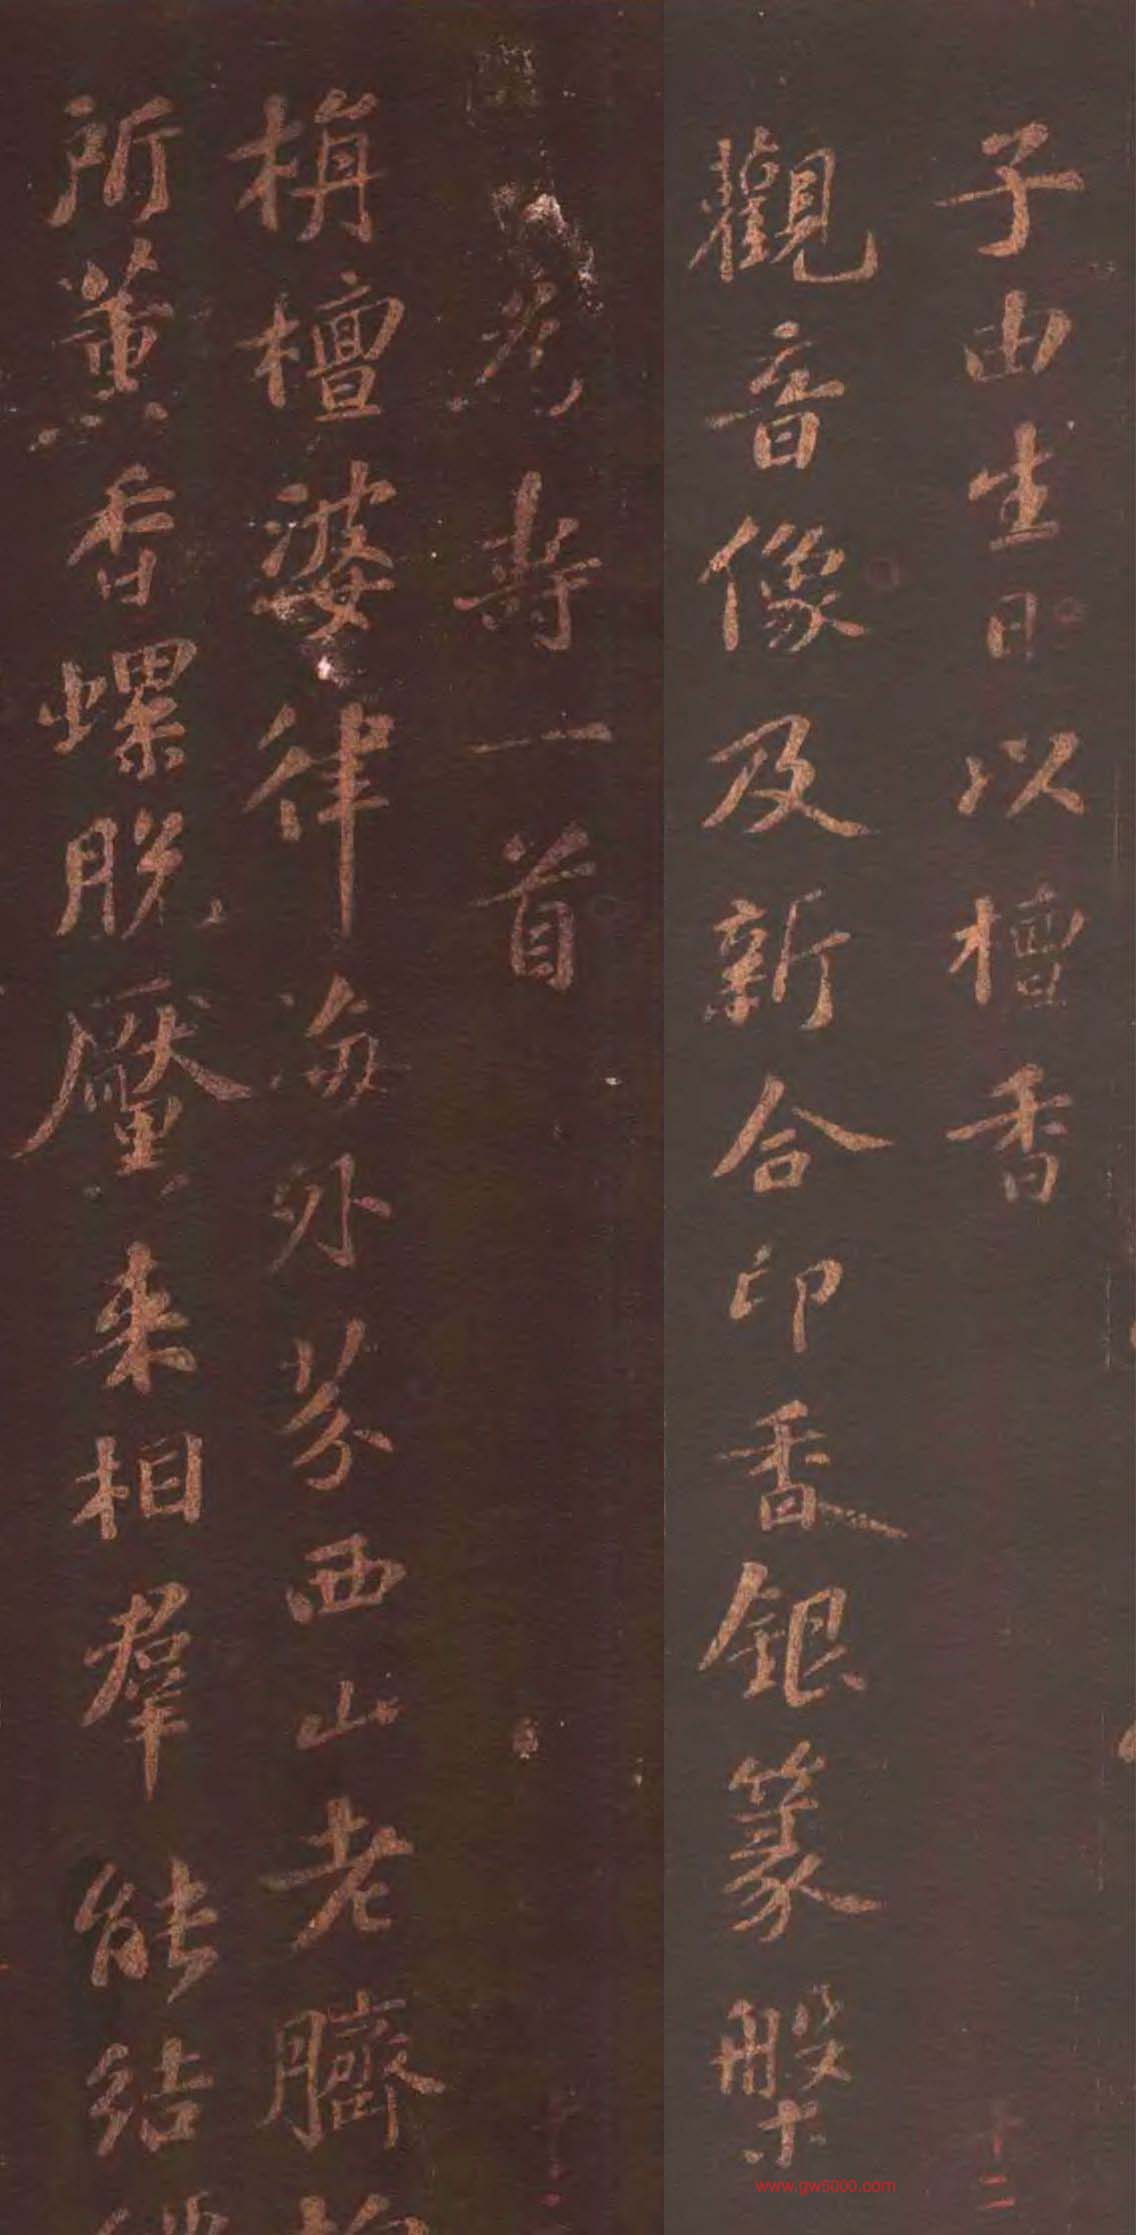 子由生日以檀香
觀音像及新合印香銀篆槃
為壽一首
栴檀婆律海外芬西山老臍柏
所薰香螺脫黶來相羣能結縹
www.gw5000.com
十二